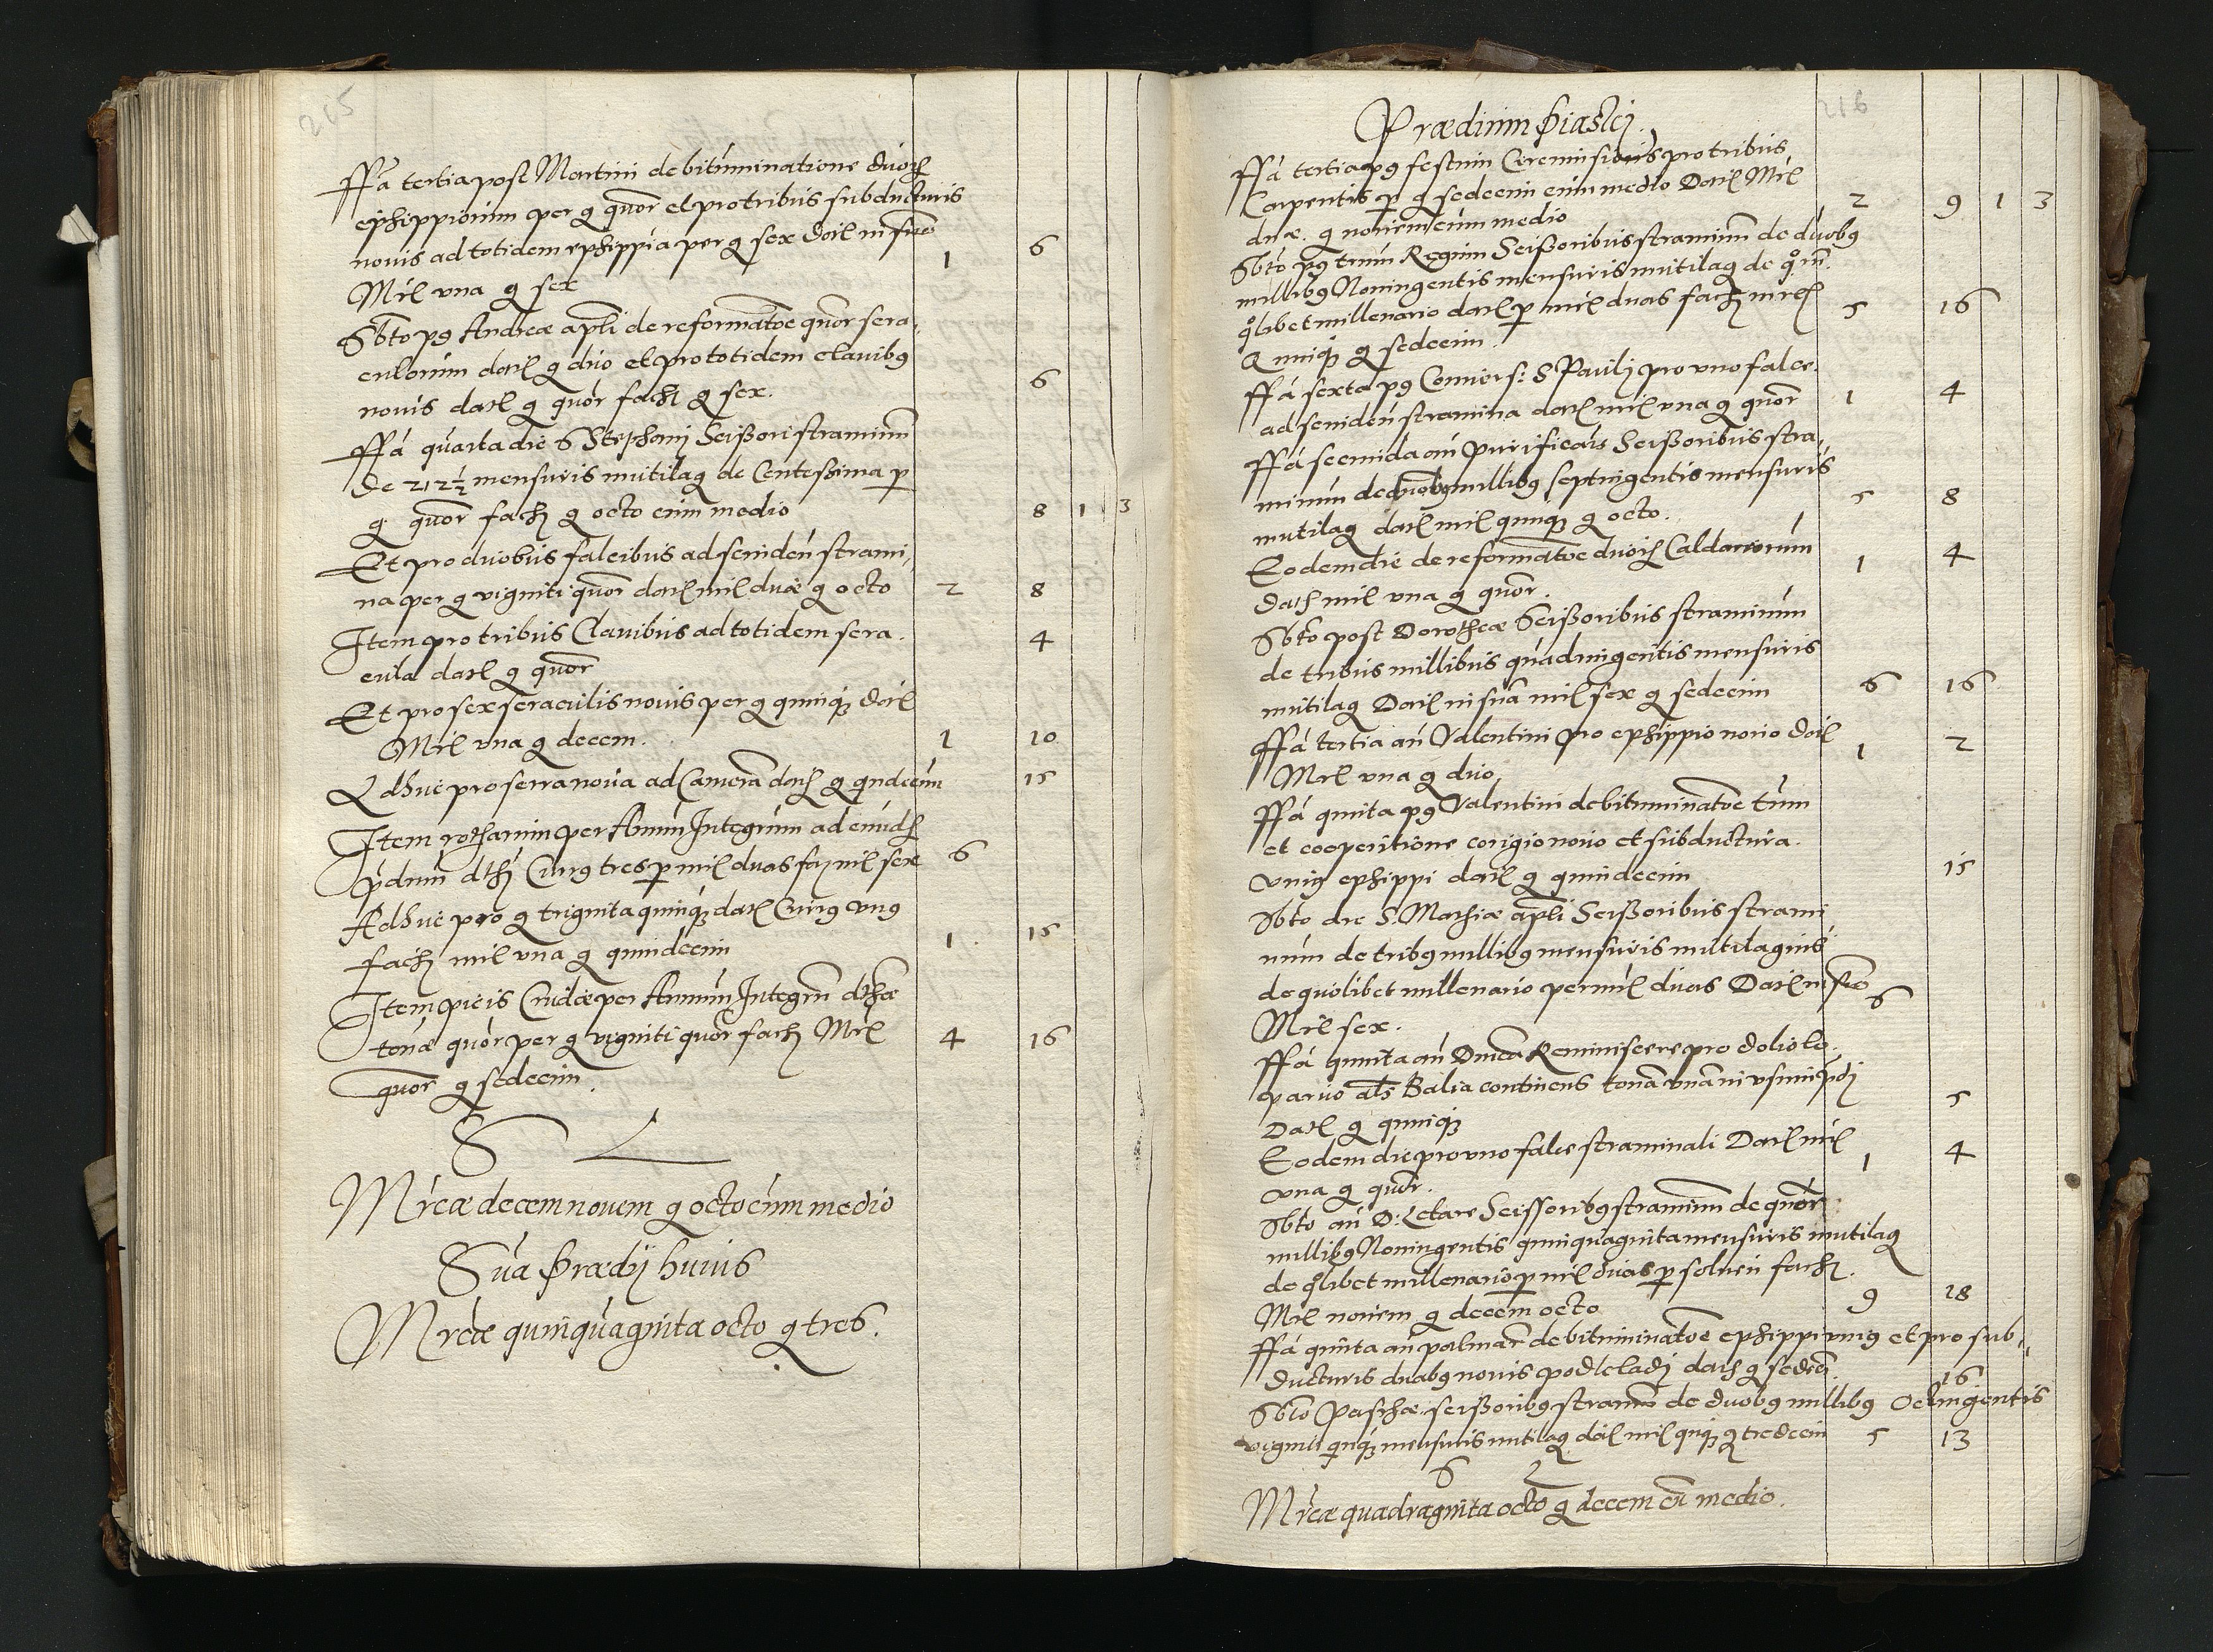 215
ffa tertia post Martini de bituminatione duorum
ephippiorum per g quor et pro tribus subducturis
novis ad totidem ephippia per g sex Datl in suo
Mrl vna g sex 1 6
Sbto p9 Andreæ apli de reformatoe quor sera,
culorum datl g duo et pro totidem clavibus
novis datl g quor fach g sex. 6
ffa quarta die S Stephani Scissori straminum
De 212½ mensuris mutilaq de Centessima p
g quor fach g octo cum medio 8 1 3
Et pro duobus falcibus ad scinden strami,
na per g viginti quor datl mrl duæ g octo 2 8
Item pro tribus Clavibus ad totidem sera.
cula datl g quor 4
Et pro sex seraculis novis per g quinq datl
Mrl vna g decem. 1 10
Adhuc pro serra nova ad Camera datl g quindecim 15
Item rothamin per Annum Integrum ad eiusd
pdium Curr9 tres p mrl duas fa mrl sex 6
Adhuc pro g triginta quinq datl Curr9 vn9
fach mrl vna g quindecim 1 15
Item picis Crudæ per Annum Integrum
tonæ quor per g viginti quor fach Mrl
quor g sedecim. 4 16
S
Mrcæ decem novem g octo cum medio
Sua Prædij huius
Mrcæ quinquaginta octo g tres.
216
Prædium Piasky.
ffa tertia p9 festum pro tribus
Carpentis p g sedecim cum medio Datl Mrl
duæ. g novem cum medio 2 9 1 3
Sbto p9 trium Regum Scissoribus straminum de duob9
millib9 Noningentis mensuris mutilaq de
qlibet millenario datl p mrl duas fach
Quinq g sedecim. 5 16
ffa sexta p9 Convers: S Pauli pro vno falce.
ad scinden stramina datl mrl vna g quor 1 4
ffa secunda an Purificatis Scissoribus stra,
minum de duob9 millib9 septingentis mensuris
mutilaq datl mrl quinq g octo. 5 8
Eodem die de reformatoe duor Caldariorum
Datl mrl vna g quor. 1 4
Sbto post Dorotheæ Scissoribus straminum
de tribus millibus quadringentis mensuris
mutilaq Datl in sua mrl sex g sedecim 6 16
ffa tertia an Valentini pro ephippio novo datl
Mrl vna g duo 1 2
ffa quinta p9 Valentini de bituminatoe trium
et cooperitione corigio novo et subductura.
vni9 ephippi datl g quindecim 15
Sbto die S. Mathiæ apli Scissoribus strami
num de trib9 millib9 mensuris mutilaginis
de quolibet millenario per mrl duas Datl in suo
Mrl sex. 6
ffa quinta an Dnica Reminiscere pro doliolo.
parvo als Balia continens tona vna in vsum pdij
Datl g quinq 5
Eodem die pro vno falce straminali Datl mrl
vna g quor. 1 4
Sbto an D: Letare Scissorib9 straminum de quor
millib9 Noningentis quinquaginta mensuris mutilaq
de qlibet millenario p mrl duas p solven fach.
Mrl novem g decem octo 9 18
ffa quinta an palmar de bituminatoe ephippi vni9 et pro sub-
ducturis duab9 novis podkladi datl g sedeci 16
Sbto Paschæ. scissorib9 stramin de duob9 millib9 Octingentis
viginti quinq mensuris mutilaq datl mrl quiq g tredecim 5 13
S
Mrcæ quadraginta octo g decem cu medio.